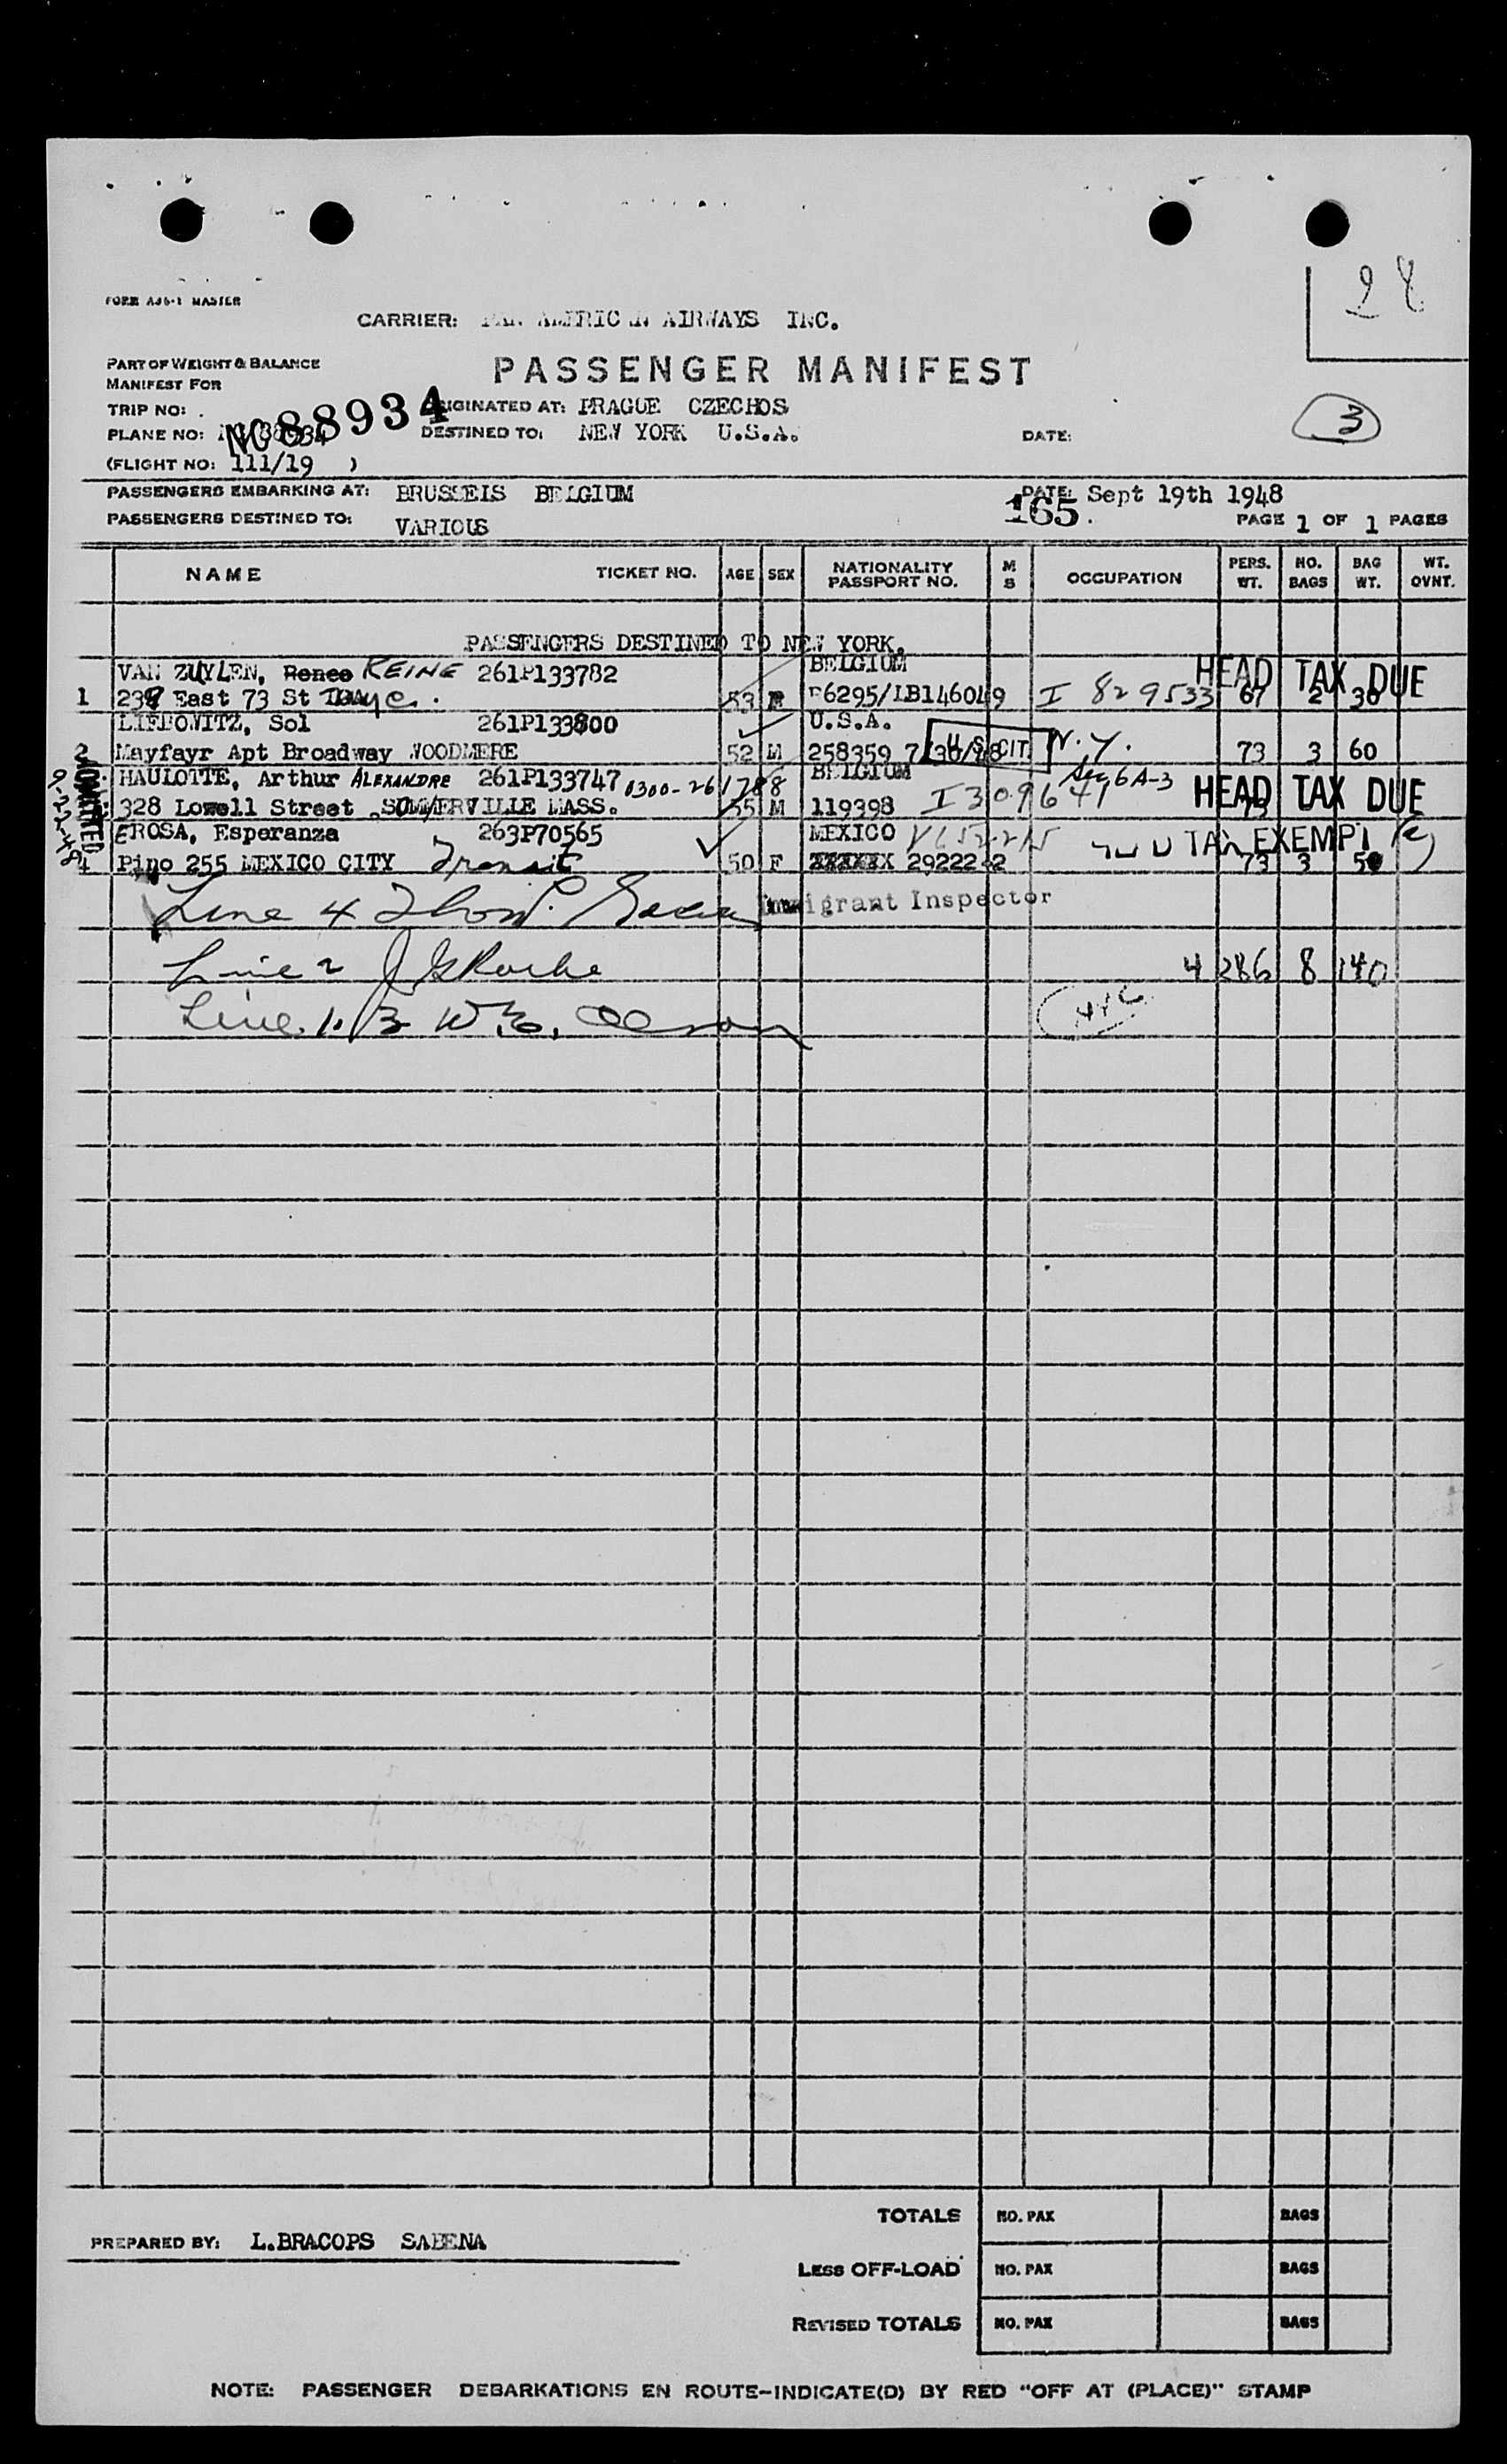 28
FORM AJ6-1 MASTER
CARRIER: PAN AMERICAN AIRWAYS INC.
PART OF WEIGHT & BALANCE
MANIFEST FOR
PASSENGER MANIFEST
TRIP NO:
ORIGINATED AT: PRAGUE CZECHOS
3
PLANE NO: NC 88934
DESTINED TO: NEW YORK U.S.A.
DATE:
(FLIGHT NO: 111/19 )
PASSENGERS EMBARKING AT: BRUSSELS BELGIUM
DATE: Sept 19th 1948
PASSENGERS DESTINED TO: VARIOUS
165.
PAGE 1 OF 1 PAGES
NAME TICKET NO. AGE SEX NATIONALITY PASSPORT NO. M S OCCUPATION PERS. WT. NO. BAGS BAG WT. WT. OVNT.
PASSENGERS DESTINED TO NEW YORK.
VAN ZUYLEN, Renee REINE 261P133782 BELGIUM HEAD TAX DUE
1 East 73 St 53 6295/LB146049 I 829533 67 2 30
LIEFOWITZ, Sol 261P133800 U.S.A.
2 Mayfayr Apt Broadway WOODMERE 52 M 258359 U.S. CIT. N.Y. 73 3 60
HAULOTTE, Arthur ALEXANDRE 261P133747 0300-261788 BELGIUM Sec 6A-3
328 Lowell Street SOMMERVILLE MASS. 55 M 119398 I 309641 73 HEAD TAX DUE
ADMITTED
9-22-48
EROSA, Esperanza 263P70565 MEXICO TAX EXEMPT
4 Pino 255 MEXICO CITY Transit 50 F XXXXXX 29222-2 73 3 50
Line 4 Immigrant Inspector
Line 2
4 286 8 140
Line 1. /3 W.
NYC
TOTALS NO. PAX BAGS
PREPARED BY: L.BRACOPS SABENA
LESS OFF-LOAD NO. PAX BAGS
REVISED TOTALS NO. PAX BAGS
NOTE: PASSENGER DEBARKATIONS EN ROUTE-INDICATE(D) BY RED "OFF AT (PLACE)" STAMP